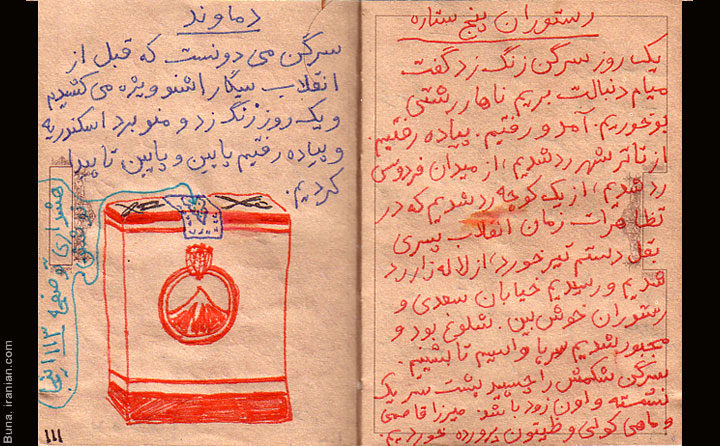 رستوران پنج ستاره
یک روز سرگن زنگ زد گفت
میام دنبالت بریم ناهار رشتی
بوخوریم. آمد و رفتیم. پیاده رفتیم.
از تاتر شهر رد شدیم، از میدان فردوسی
رد شدیم، از یک کوچه رد شدیم که در
تظاهرات زمان انقلاب پسری
بقل دستم تیر خورد، از لاله زار رد
شدیم و رسیدیم خیابان سعدی و
رستوران خوش بین. شلوغ بود و
مجبور شدیم سرپا واسیم تا بشینیم.
سرگن شکمش را چسپید پشت سر یک
نشسته و اون زود پا شد. میرزا قاسمی
و ماهی کولی و زیتون پرورده خوردیم.
دماوند
سرگن می دونست که قبل از
انقلاب سیگار اشنو ویژه می کشیدیم
و یک روز زنگ زد و منو برد اسکندریه
و پیاده رفتیم پایین و پایین تا پیدا
کردیم.
صفحه ۱۱۳
۱۱۱
Buna, iranian.com